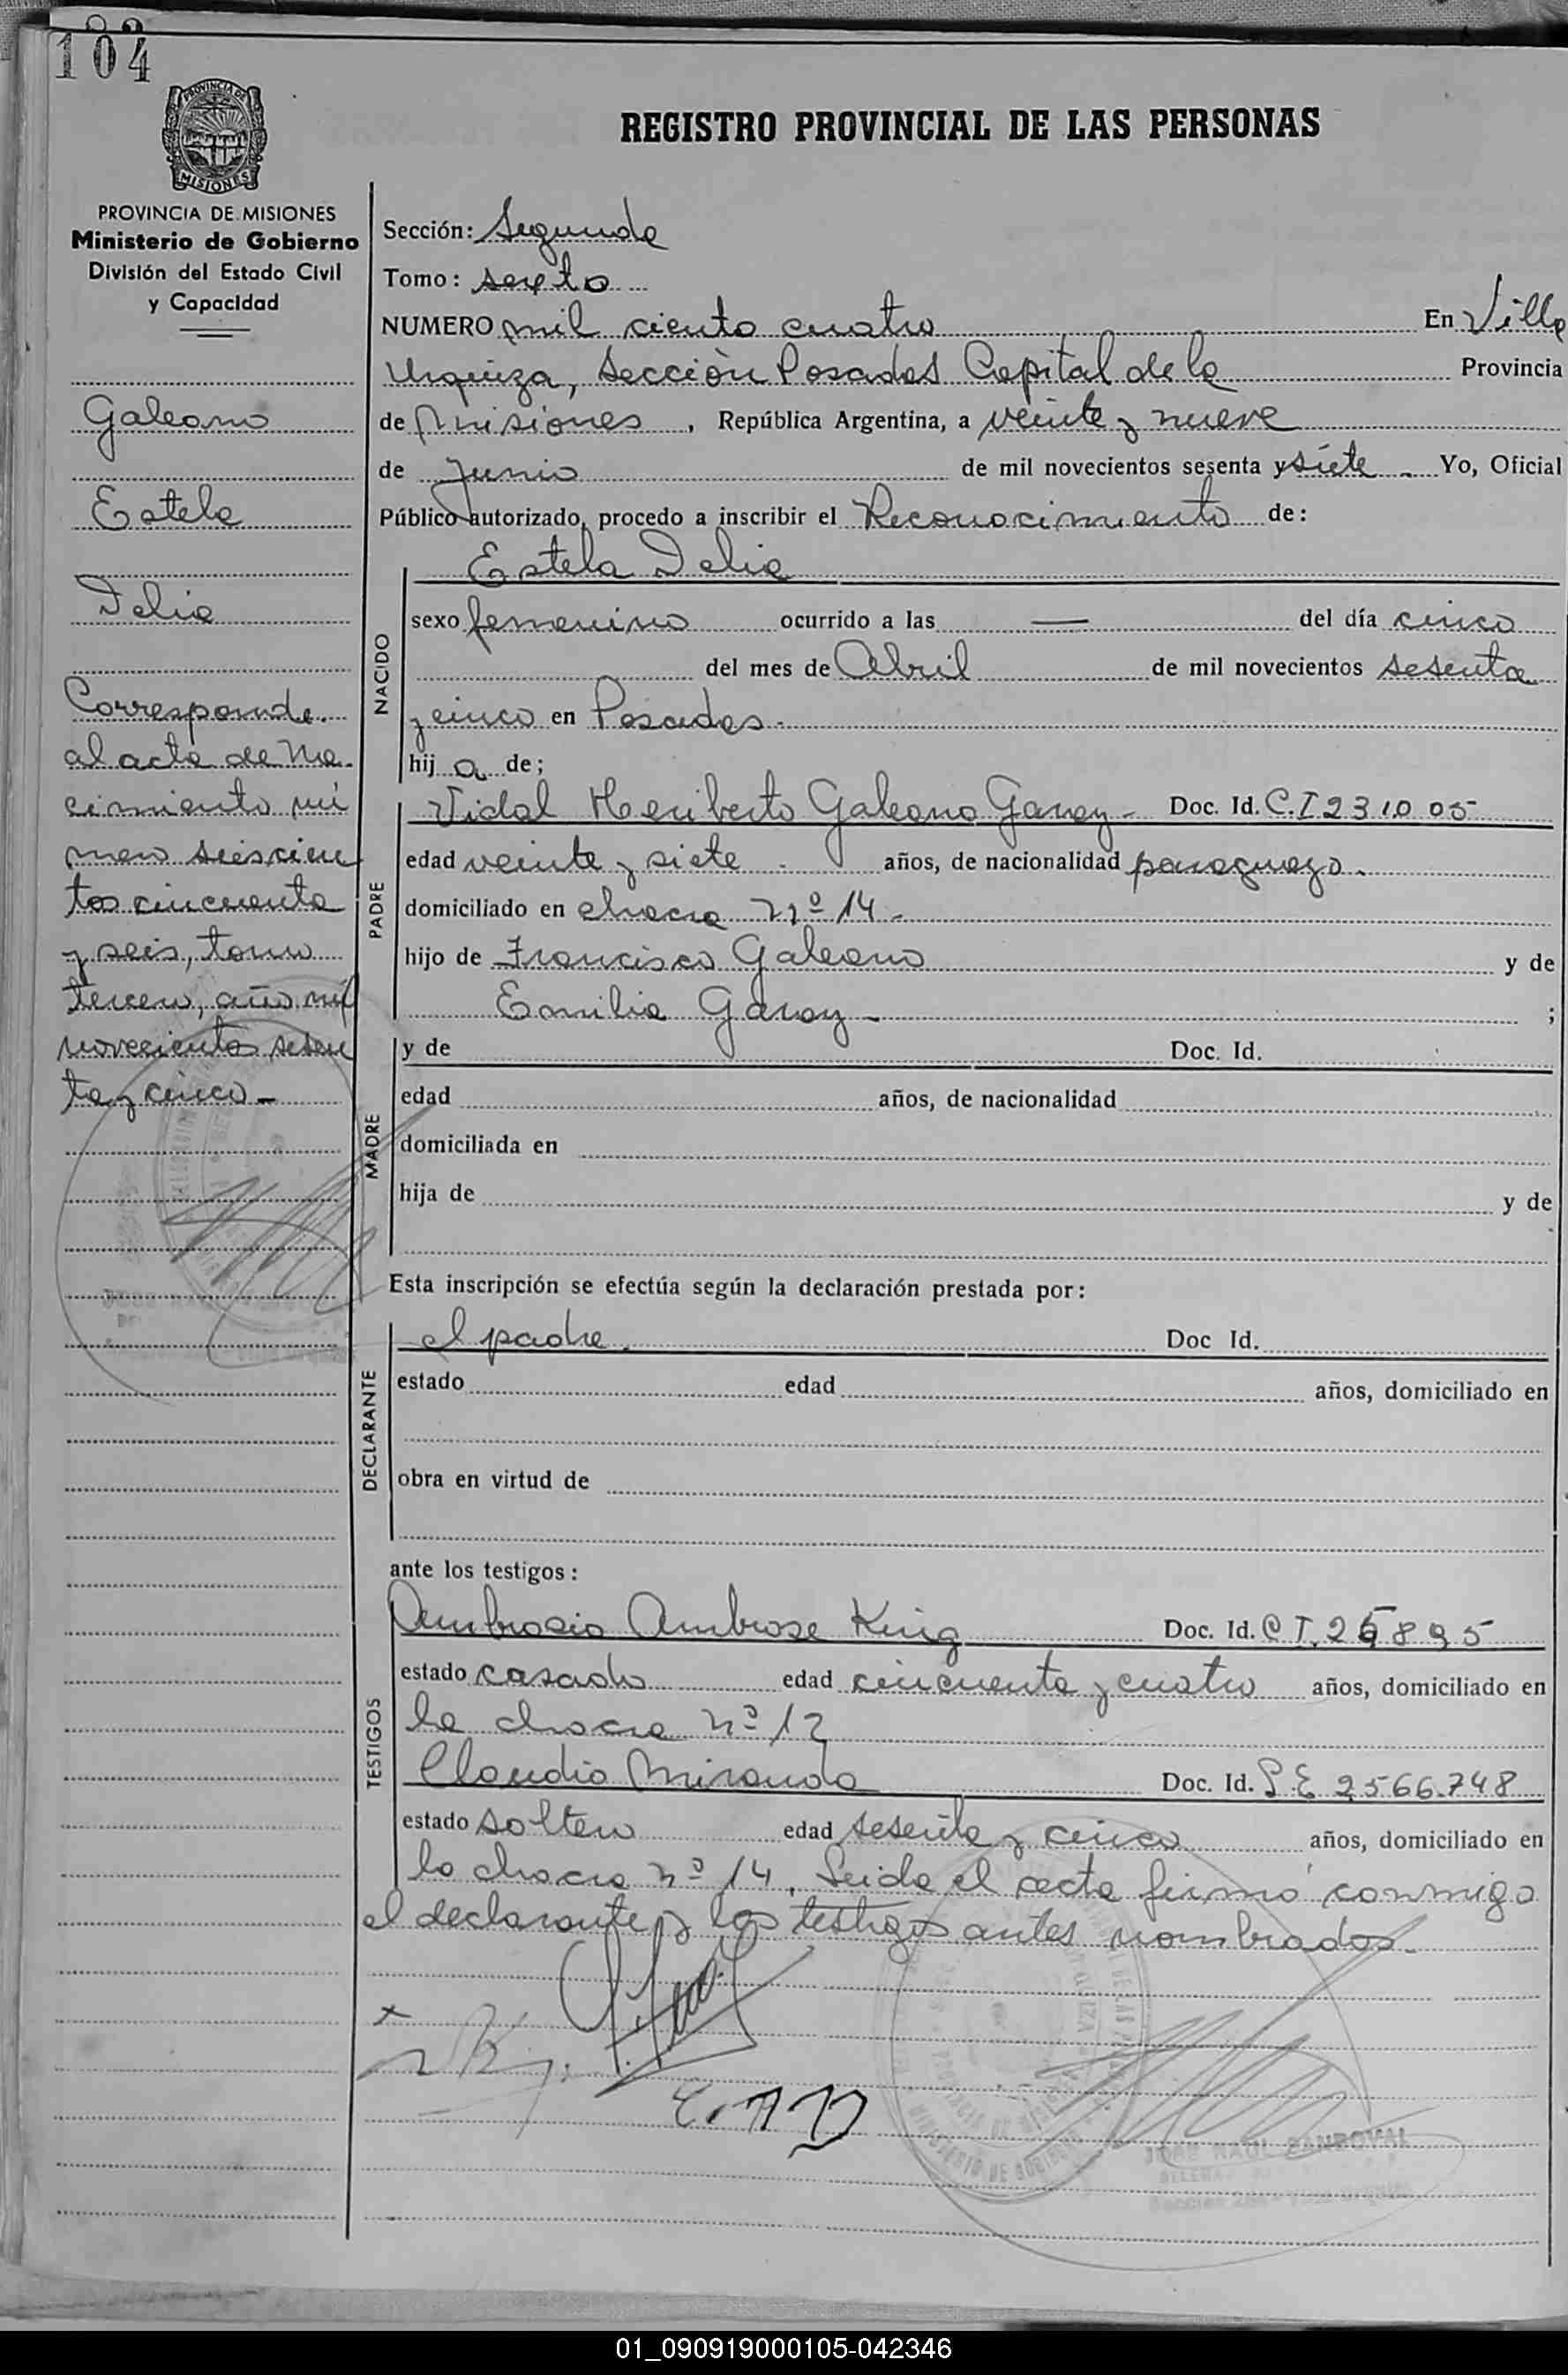 104
PROVINCIA DE MISIONES
REGISTRO PROVINCIAL DE LAS PERSONAS
PROVINCIA DE MISIONES
Ministerio de Gobierno
División del Estado Civil
y Capacidad
Galeano
Estela
Delia
Corresponde
al acta de Na-
cimiento nú
mero seiscien
tos cincuenta
y seis, tomo
tercero, año mil
novecientos sesen
ta y cinco -
Sección: Segunda
Tomo: sexto
NUMERO mil ciento cuatro En Villa
Urquiza, Sección Posadas Capital de la Provincia
de Misiones, República Argentina, a veinte y nueve
de Junio de mil novecientos sesenta y siete. Yo, Oficial
Público autorizado, procedo a inscribir el Reconocimiento de:
Estela Delia
NACIDO
sexo femenino ocurrido a las — del día cinco
del mes de Abril de mil novecientos sesenta
y cinco en Posadas.
hij a de;
PADRE
Vidal Heriberto Galeano Garay - Doc. Id. C.I 231005
edad veinte y siete . años, de nacionalidad paraguayo.
domiciliado en chacra nº 14 -
hijo de Francisco Galeano y de
Emilia Garay - ;
MADRE
y de Doc. Id.
edad años, de nacionalidad
domiciliada en
hija de y de
Esta inscripción se efectúa según la declaración prestada por:
DECLARANTE
el padre. Doc Id.
estado edad años, domiciliado en
obra en virtud de
ante los testigos:
TESTIGOS
Ambrosio Ambrose King Doc. Id. C I. 895
estado casado edad cincuenta y cuatro años, domiciliado en
la chacra nº 12
Claudio Miranda Doc. Id. 2.566.748
estado soltero edad sesenta y cinco años, domiciliado en
la chacra nº 14. Leida el acta firmó conmigo
el declarante y los testigos antes nombrados.
JOSE RAUL SANDOVAL
01_090919000105-042346